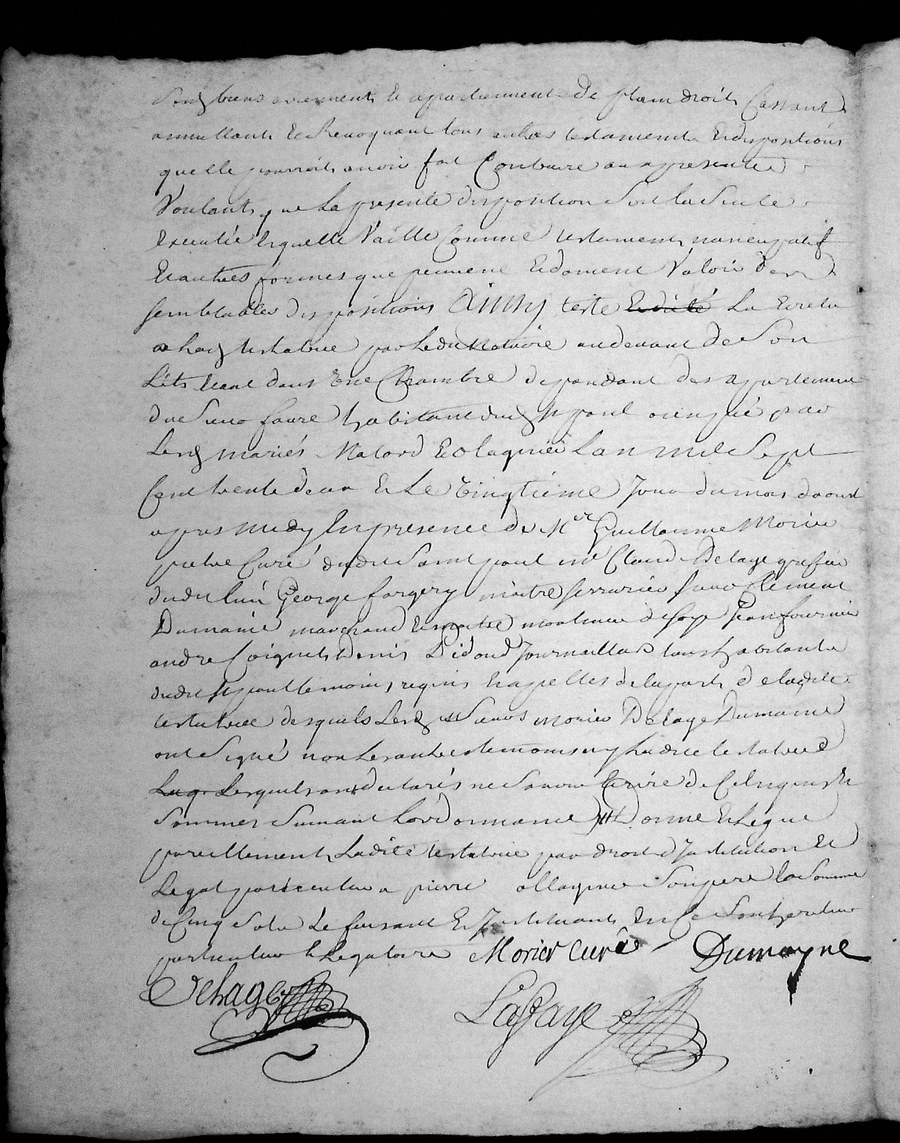 biens aviennent & apartiennent De plain droit Cassant
annullant & Revoquant tous autres testaments & dispositions
quelle pourroit avoir fait Contraire au presente
Voulant que La presente disposition soit La Seule
Executée Laquelle Vaille Comme testament nuncupatif
& autres formes que peuvent & doivent Valoir
semblables dispositions Ainsy testé La
testatrice par Ledit Notaire au devant De Son
Lit Etant dans Une Chambre dependant des apartement
du Sieur faure habitant dud St paul par
Lesd mariés Matord & olagnier Lan mil Sept
Cent trente deux & Le Vingtieme Jour du mois daoust
apres midy En presence de Mre Guillaume Morier
pretre Curé dudit Saint paul Me Claude Delage greffier
dudit lieu George forgery maitre serrurier Sieur Clement
Dumaine marchand & maitre moulinier de soye Jean fournier
andre Coignet Denis Journaillard tous habitants
dudit St paul temoins requis & apelles de la part de ladite
testatrice desquels Lesd Sieurs Morier Delage Dumaine
ont Signé non Les autres temoins ny Ladite testatrice
Lesquels ont declarés ne Savoir Ecrire de Ce Enquis &
Sommes Suivant Lordonnance Donne & Legue
pareillement Ladite testatrice par droit d Institution &
Legat particulier a pierre ollagnier Son pere La Somme
de Cinq Sols Le faisant & Instituant En Ce Son heritier
particulier & Legataire Morier curé Dumayne
Delhage Lafaye